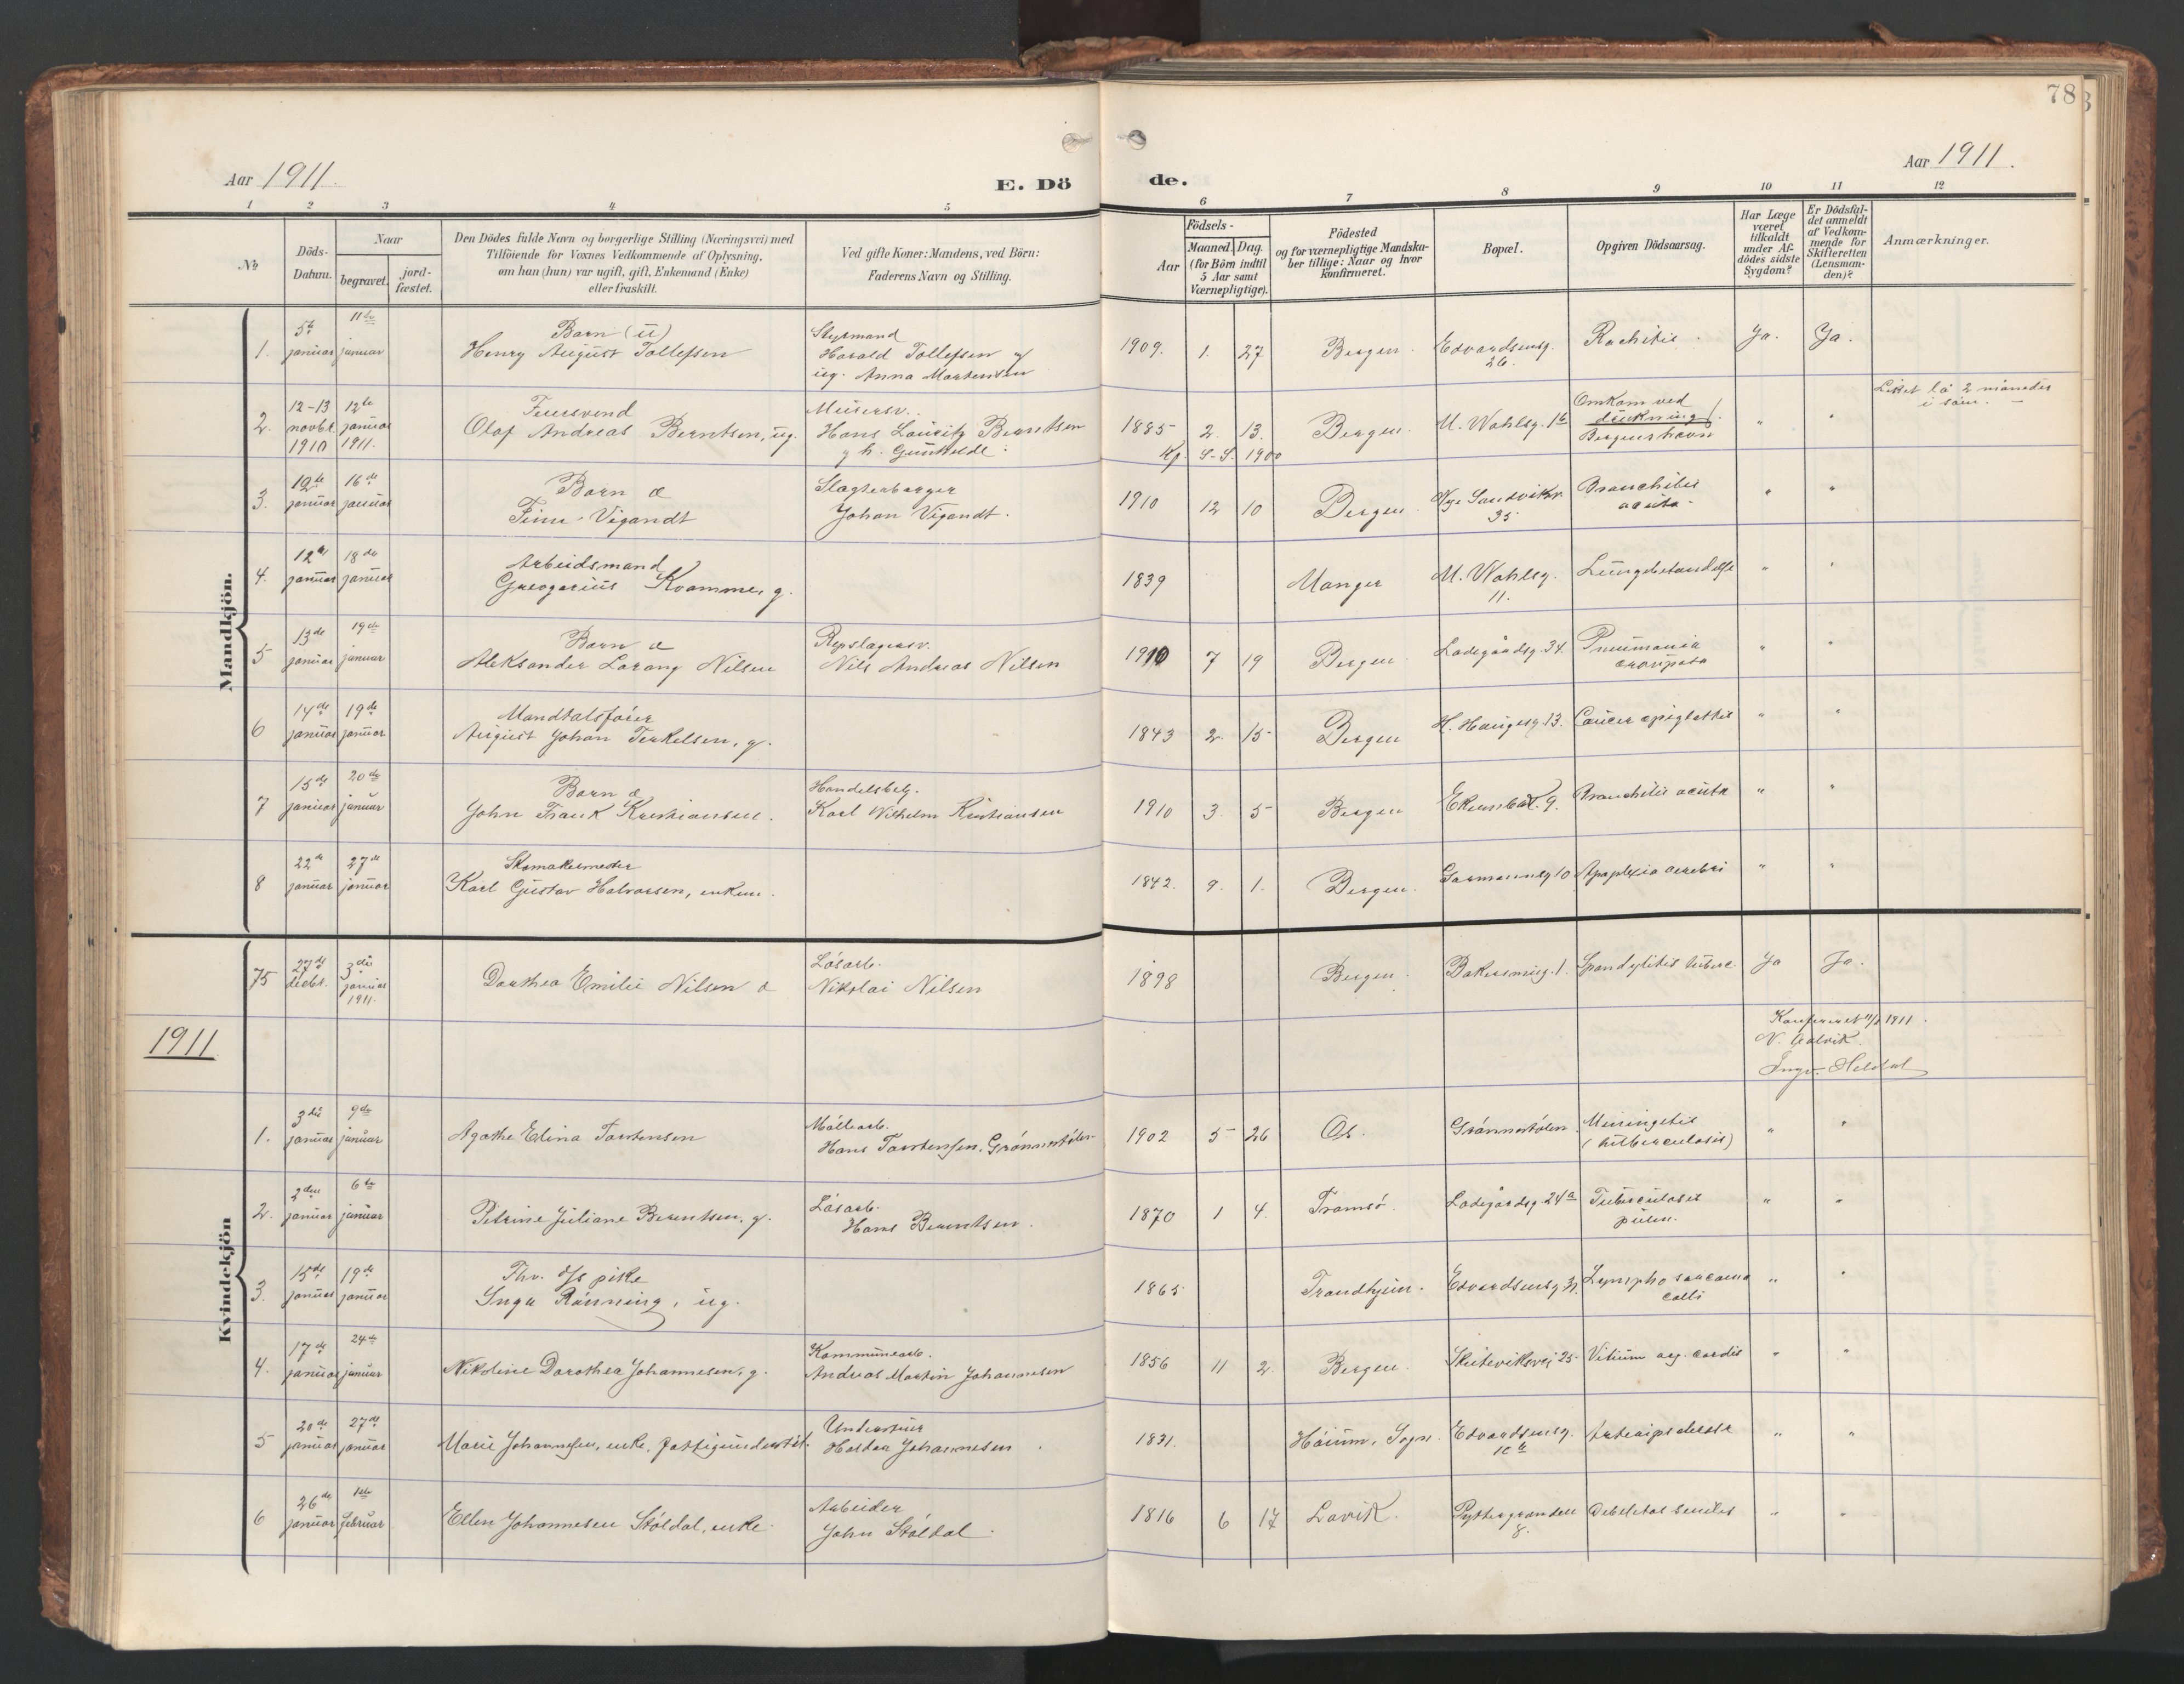 78
Aar 1911.
E. Dö
de.
Aar 1911.
1 2 3 4 5 6 7 8 9 10 11 12
№
Döds-Datum.
Naar
begravet.
jord-fæstet.
Den Dödes fulde Navn og borgerlige Stilling (Næringsvei) med
Tilföiende for Voxnes Vedkommende af Oplysning,
om han (hun) var ugift, gift, Enkemand (Enke)
eller fraskilt.
Ved gifte Koner: Mandens, ved Börn:
Faderens Navn og Stilling.
Födsels-
Aar
Maaned. Dag.
(for Börn indtil
5 Aar samt
Værnepligtige).
Födested
og for værnepligtige Mandska-
ber tillige: Naar og hvor
konfirmeret.
Bopæl.
Opgiven Dödsaarsag.
Har Læge
været
tilkaldt
under Af-
dödes sidste
Sygdom?
Er Dödsfal-
det anmeldt
af Vedkom-
mende for
Skifteretten
(Lensman-
den)?
Anmærkninger.
Mandkjön.
1. 5te januar 11te januar Barn (u) Henry August Tollefsen Styrmand Harald Tollefsen og ug. Anna Martensen 1909. 1. 27 Bergen. Edvardsensg. 26. Rachitis. Ja. Ja.
2. 12-13 novbr. 1910 12te januar 1911. Olaf Andreas Berntsen, ug. Murersv. Hans Lauritz Berntsen og h. Gunhilde. 1885 2. 13. Bergen. M. Wahlsg. 1b Omkom ved drukning Bergens havn " " Liket lå 2 måneder i sjøen. -
Kf. S-S. 1900
3. 12te januar 16de januar Barn æ Finn Vigandt Slagterborger Johan Vigandt. 1910 12 10 Bergen Nye Sandviksv. 35 Bronchitis acuta. " "
4. 12te januar 18de januar Arbeidsmand Gregorius Kvamme, g. 1839 Manger M. Wahlsg. 11. Lungebetændelse " "
5 13de januar 19de januar Barn æ Aleksander Lorang Nilsen Repslagersv. Nils Andreas Nilsen 1910 7 19 Bergen Ladegårdsg. 34. Pneumonia crouposa " "
6 14de januar 19de januar Mandtalsfører August Johan Terkelsen, g. 1843 2. 15 Bergen H. Haugesg. 13. Cancer epiglottis " "
7 15de januar 20de januar Barn æ John Frank Kristiansen. Handelsbetj. Karl Wilhelm Kristiansen 1910 3. 5 Bergen 9. Bronchitis acuta " "
8 22de januar 27de januar Skomakermester Karl Gustav Halvorsen, enkem. 1842. 9. 1. Bergen. Garmannsg 10 Apoplexia cerebri " "
75 27de decbr. 3die januar 1911. Dorthea Emilie Nilsen æ Løsarb. Nikolai Nilsen 1898 Bergen. Bakersmug. 1. Spondylitis tuberc. Ja Ja.
1911
Konfereret 1911.
Kvindekjön
1. 3die januar 9de januar Agathe Elina Torstensen Møllearb. Hans Torstensen, Grønnestølen 1902 5 26 Os. Grønnestølen. Meningitis (tuberculosis) " "
2. 2den januar 6te januar Petrine Juliane Berntsen, g. Løsarb. Hans Berntsen. 1870 1 4. Tromsø. Ladegårdsg. 24a Tuberculosis pulm. " "
3. 15de januar 19de januar Thv. pike Inga Rønning, ug. 1865 Trondhjem. Edvardsensg 31. Lympho sarcoma colli " "
4. 17de januar 24de januar Nikoline Dorothea Johannesen, g. Kommunearb. Andreas Martin Johannesen 1856 11 2. Bergen. Skuteviksvei 25. Vitium org. cordis " "
5 20de januar 27de januar Marie Johannesen, enke, fattigunderstøt. Haldor Johannesen 1831. Høium, Sogn. Edvardsensg. 10b " "
6 26de januar 1ste februar Ellen Johannesen Støldal, enke. Arbeider John Støldal. 1816 6 17 Lavik. Pyttergrenden 8. Debilitas seniles " "